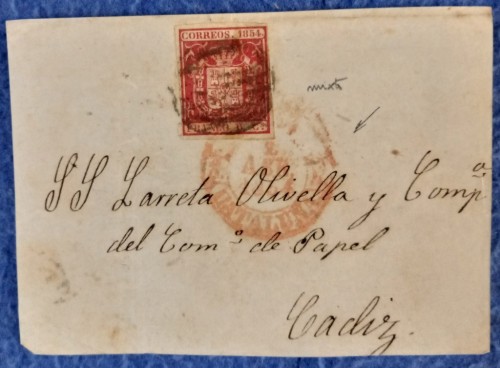 CORREOS. 1854
SS Larreta Olivella y Comp.ª
del Com.º de Papel
Cadiz.